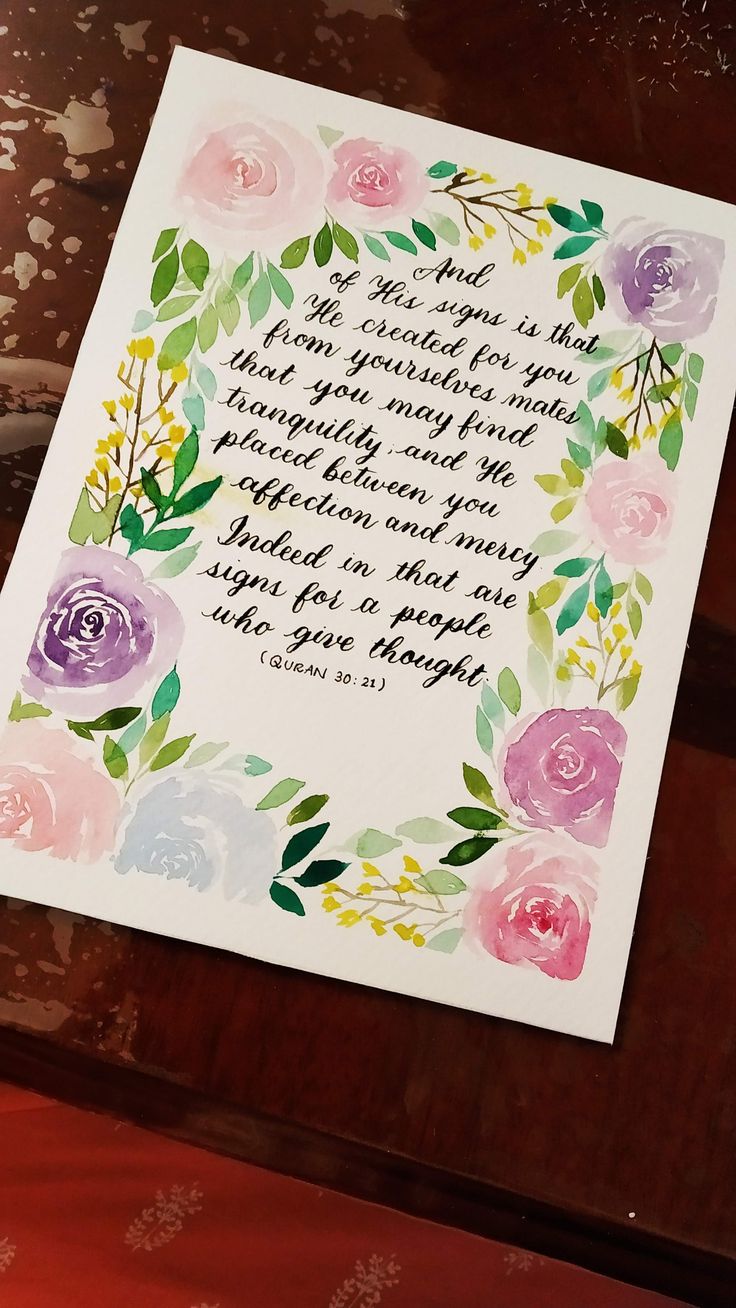 And
of His signs is that
He created for you
from yourselves mates
that you may find
tranquility; and He
placed between you
affection and mercy.
Indeed in that are
signs for a people
who give thought.
(QURAN 30:21)